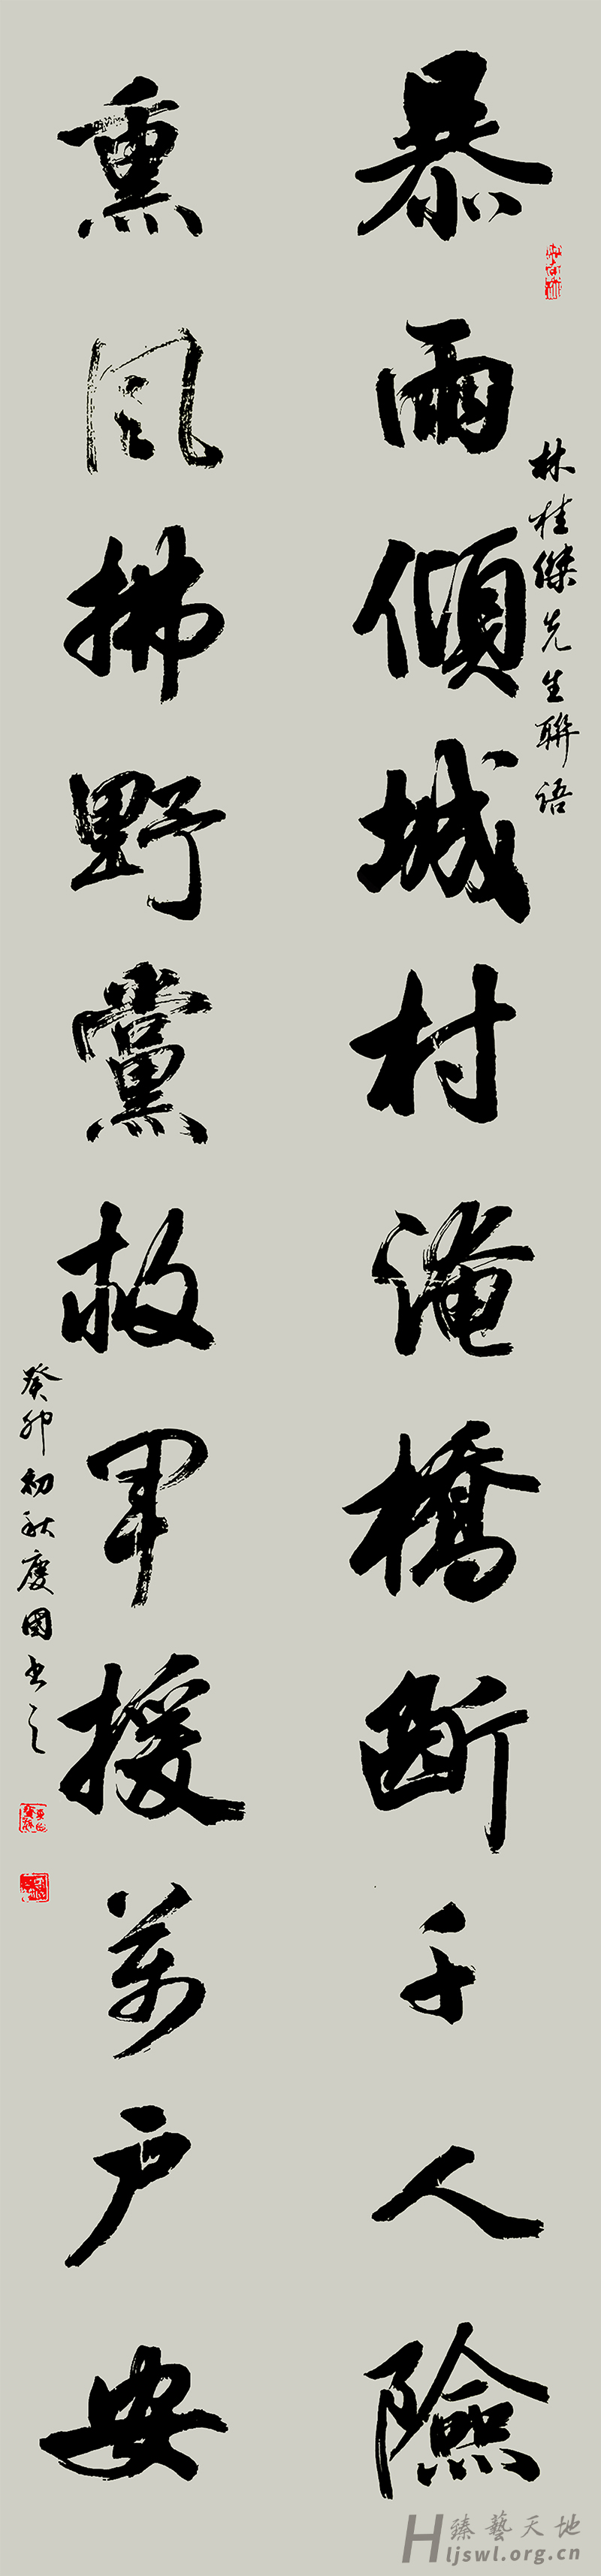 暴雨傾城村淹橋斷千人險
林桂傑先生聯语
熏風拂野黨救軍援万户安
癸卯初秋慶国书之
臻藝天地
Hljswl.org.cn